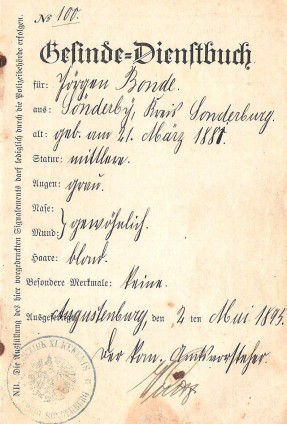 No 100.
Gesinde-Dienstbuch
für: Jörgen Bonde.
aus: Sönderby, Kreis Sonderburg.
alt: geb. am 21. März 1881.
Statur: mittlere.
Augen: grau.
Nase:
Mund: } gewöhnlich.
Haare: blond.
Besondere Merkmale: keine.
Ausgefertigt Augustenburg, den 2 ten Mai 1895.
Der kom. Amtsvorsteher.
NB. Die Ausfüllung des hier vorgedruckten Signalements darf lediglich durch die Polizeibehörde erfolgen.